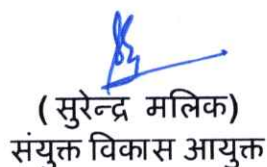 ( सुरेन्द्र मलिक)
संयुक्त विकास आयुक्त